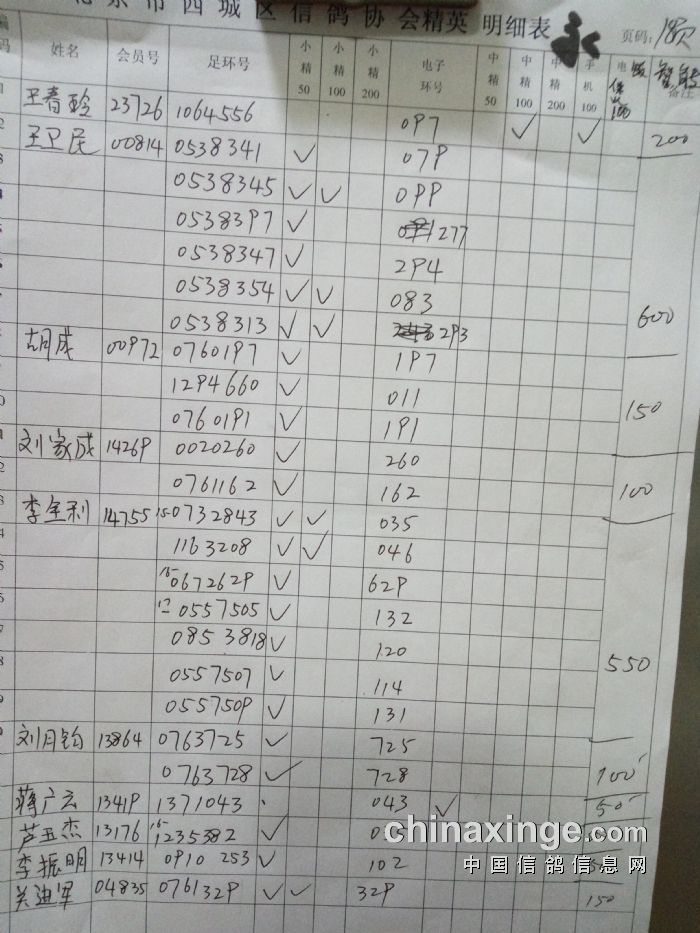 市西城区信鸽协会精英 明细表 页码: 18页
姓名 会员号 足环号 小精50 小精100 小精200 电子环号 中精50 中精100 中精200 手机100 备注
王春玲 23726 1064556 097 ✓ ✓ 200
王卫民 00814 0538341 ✓ 079
0538345 ✓ ✓ 099
0538397 ✓ 277
0538347 ✓ 294
0538354 ✓ ✓ 083
0538313 ✓ ✓ 293 600
胡成 00972 0760197 ✓ 197
1294660 ✓ 011
0760191 ✓ 191 150
刘家成 14269 0020260 ✓ 260
0761162 ✓ 162 100
李全利 14755 15-0732843 ✓ ✓ 035
1163208 ✓ ✓ 046
15 0672629 ✓ 629
0557505 ✓ 132
0853818 ✓ 120
0557507 ✓ 114
0557509 ✓ 131 550
刘月钧 13864 0763725 ✓ 725
0763728 ✓ 728 100
蒋广云 13419 1371043 043 ✓ 50
芦玉杰 13176 15 1235382 ✓
李振明 13414 0910253 ✓ 102
关迪军 04835 0761329 ✓ ✓ 329 150
chinaxinge.com
中国信鸽信息网